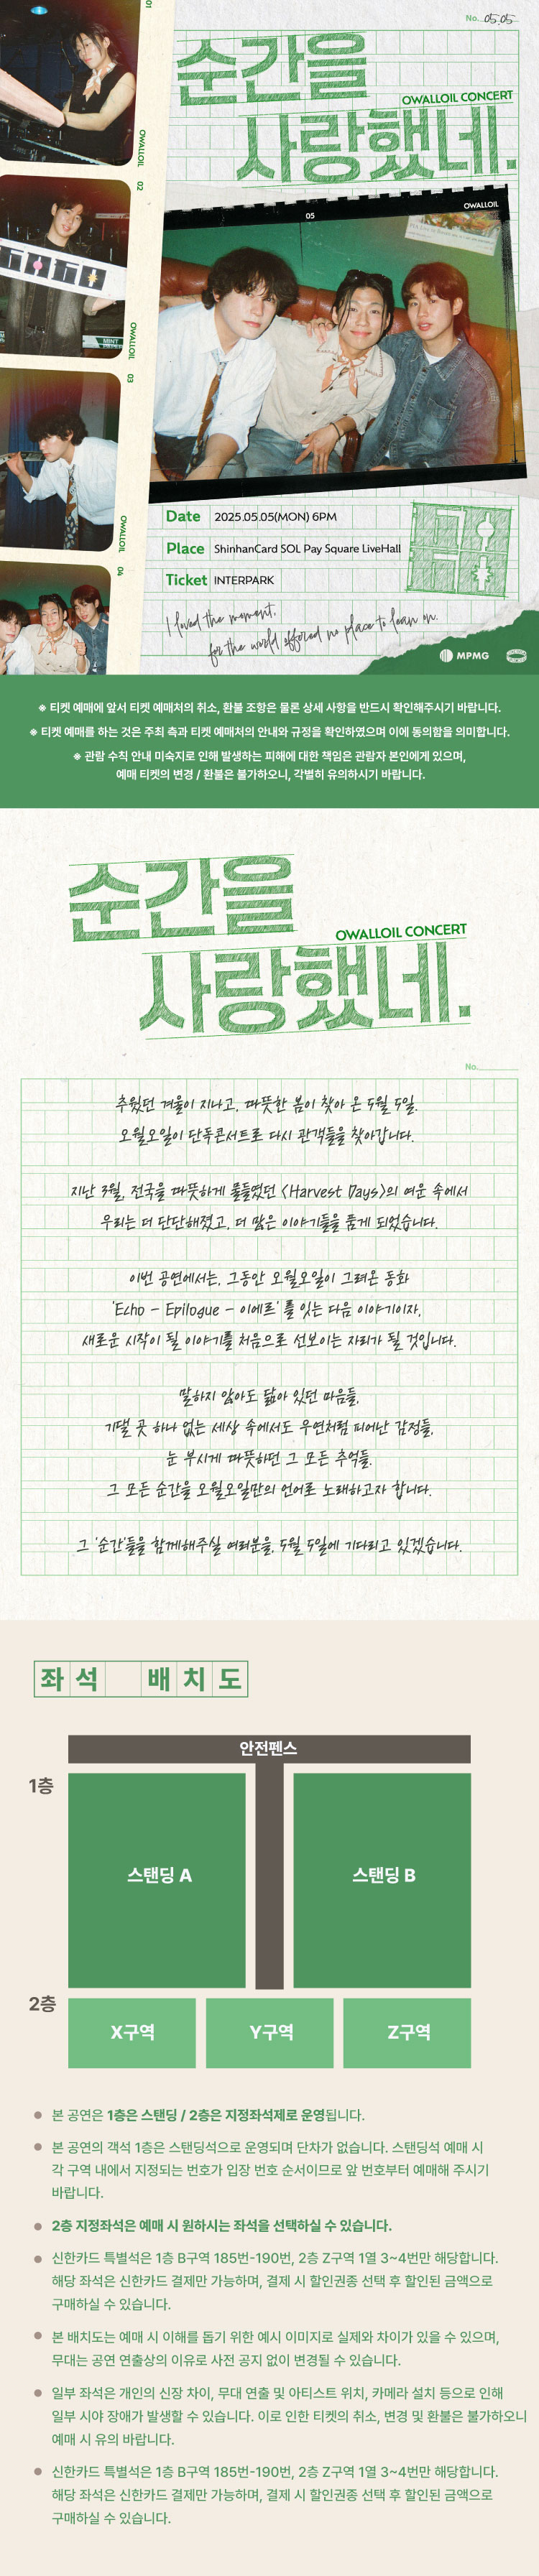 01
No. 05.05
순간을
OWALLOIL CONCERT
사랑했네.
OWALLOIL
02
05
OWALLOIL
OWALLOIL
03
OWALLOIL
04
Date 2025.05.05(MON) 6PM
Place ShinhanCard SOL Pay Square LiveHall
Ticket INTERPARK
I loved the moment.
for the world offered no place to lean on.
MPMG
※ 티켓 예매에 앞서 티켓 예매처의 취소, 환불 조항은 물론 상세 사항을 반드시 확인해주시기 바랍니다.
※ 티켓 예매를 하는 것은 주최 측과 티켓 예매처의 안내와 규정을 확인하였으며 이에 동의함을 의미합니다.
※ 관람 수칙 안내 미숙지로 인해 발생하는 피해에 대한 책임은 관람자 본인에게 있으며,
예매 티켓의 변경 / 환불은 불가하오니, 각별히 유의하시기 바랍니다.
순간을
OWALLOIL CONCERT
사랑했네.
No.
추웠던 겨울이 지나고, 따뜻한 봄이 찾아 온 5월 5일.
오월오일이 단독콘서트로 다시 관객들을 찾아갑니다.
지난 3월, 전국을 따뜻하게 물들였던 <Harvest Days>의 여운 속에서
우리는 더 단단해졌고, 더 많은 이야기들을 품게 되었습니다.
이번 공연에서는, 그동안 오월오일이 그려온 동화
'Echo - Epilogue - 이에르' 를 잇는 다음 이야기이자,
새로운 시작이 될 이야기를 처음으로 선보이는 자리가 될 것입니다.
말하지 않아도 닮아 있던 마음들,
기댈 곳 하나 없는 세상 속에서도 우연처럼 피어난 감정들,
눈 부시게 따뜻하던 그 모든 추억들.
그 모든 순간을 오월오일만의 언어로 노래하고자 합니다.
그 '순간'들을 함께해주실 여러분을, 5월 5일에 기다리고 있겠습니다.
좌석 배치도
안전펜스
1층
스탠딩 A
스탠딩 B
2층
X구역
Y구역
Z구역
● 본 공연은 1층은 스탠딩 / 2층은 지정좌석제로 운영됩니다.
● 본 공연의 객석 1층은 스탠딩석으로 운영되며 단차가 없습니다. 스탠딩석 예매 시
각 구역 내에서 지정되는 번호가 입장 번호 순서이므로 앞 번호부터 예매해 주시기
바랍니다.
● 2층 지정좌석은 예매 시 원하시는 좌석을 선택하실 수 있습니다.
● 신한카드 특별석은 1층 B구역 185번-190번, 2층 Z구역 1열 3~4번만 해당합니다.
해당 좌석은 신한카드 결제만 가능하며, 결제 시 할인권종 선택 후 할인된 금액으로
구매하실 수 있습니다.
● 본 배치도는 예매 시 이해를 돕기 위한 예시 이미지로 실제와 차이가 있을 수 있으며,
무대는 공연 연출상의 이유로 사전 공지 없이 변경될 수 있습니다.
● 일부 좌석은 개인의 신장 차이, 무대 연출 및 아티스트 위치, 카메라 설치 등으로 인해
일부 시야 장애가 발생할 수 있습니다. 이로 인한 티켓의 취소, 변경 및 환불은 불가하오니
예매 시 유의 바랍니다.
● 신한카드 특별석은 1층 B구역 185번-190번, 2층 Z구역 1열 3~4번만 해당합니다.
해당 좌석은 신한카드 결제만 가능하며, 결제 시 할인권종 선택 후 할인된 금액으로
구매하실 수 있습니다.